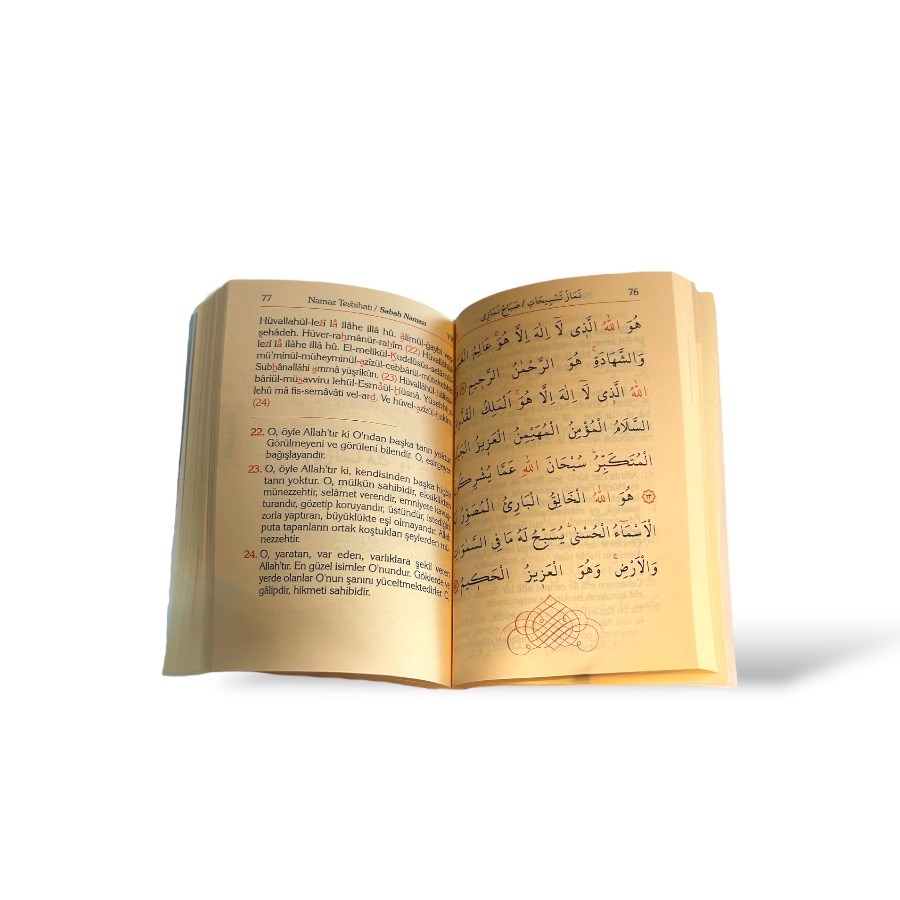 76 نَمَازْ تَسْبِيحَاتِ / صَبَاحْ نَمَازِى
هُوَ اللّٰهُ الَّذِى لَٓا اِلٰهَ اِلَّا هُوَۚ عَالِمُ
وَالشَّهَادَةِۚ هُوَ الرَّحْمٰنُ الرَّحِيمُ
اللّٰهُ الَّذِى لَٓا اِلٰهَ اِلَّا هُوَۚ اَلْمَلِكُ
السَّلَامُ الْمُؤْمِنُ الْمُهَيْمِنُ الْعَزِيزُ
الْمُتَكَبِّرُۜ سُبْحَانَ اللّٰهِ عَمَّا
﴿٢٣﴾ هُوَ اللّٰهُ الْخَالِقُ الْبَارِئُ الْمُصَوِّرُ
الْاَسْمَٓاءُ الْحُسْنٰىۜ يُسَبِّحُ لَهُ مَا فِى
وَالْاَرْضِۚ وَهُوَ الْعَزِيزُ الْحَكِيمُ
77 Namaz Tesbihatı / Sabah Namazı
Hüvallahül-lezî lâ ilâhe illâ hû, alimül-ğaybi
şehâdeh. Hüver-rahmânür-rahîm (22)
lezî lâ ilâhe illâ hû. El-melikül-Kuddûsüs-
mü'minül-müheyminül-azîzül-cebbârül-
Subhânallâhi ammâ yüşrikûn. (23) Hüvallâhül-
bâriül-müsavviru lehül-Esmâül-Hüsnâ.
lehû mâ fis-semâvâti vel-ard. Ve hüvel-azîzül-
(24)
22. O, öyle Allah'tır ki O'ndan başka tanrı yoktur.
Görülmeyeni ve görüleni bilendir. O, esirgeyen
bağışlayandır.
23. O, öyle Allah'tır ki, kendisinden başka
tanrı yoktur. O, mülkün sahibidir,
münezzehtir, selâmet verendir, emniyete
turandır, gözetip koruyandır, üstündür,
zorla yaptıran, büyüklükte eşi olmayandır. Allah
puta tapanların ortak koştukları şeylerden mü-
nezzehtir.
24. O, yaratan, var eden, varlıklara şekil veren
Allah'tır. En güzel isimler O'nundur. Göklerde ve
yerde olanlar O'nun şanını yüceltmektedirler. O,
gâlipdir, hikmeti sahibidir.